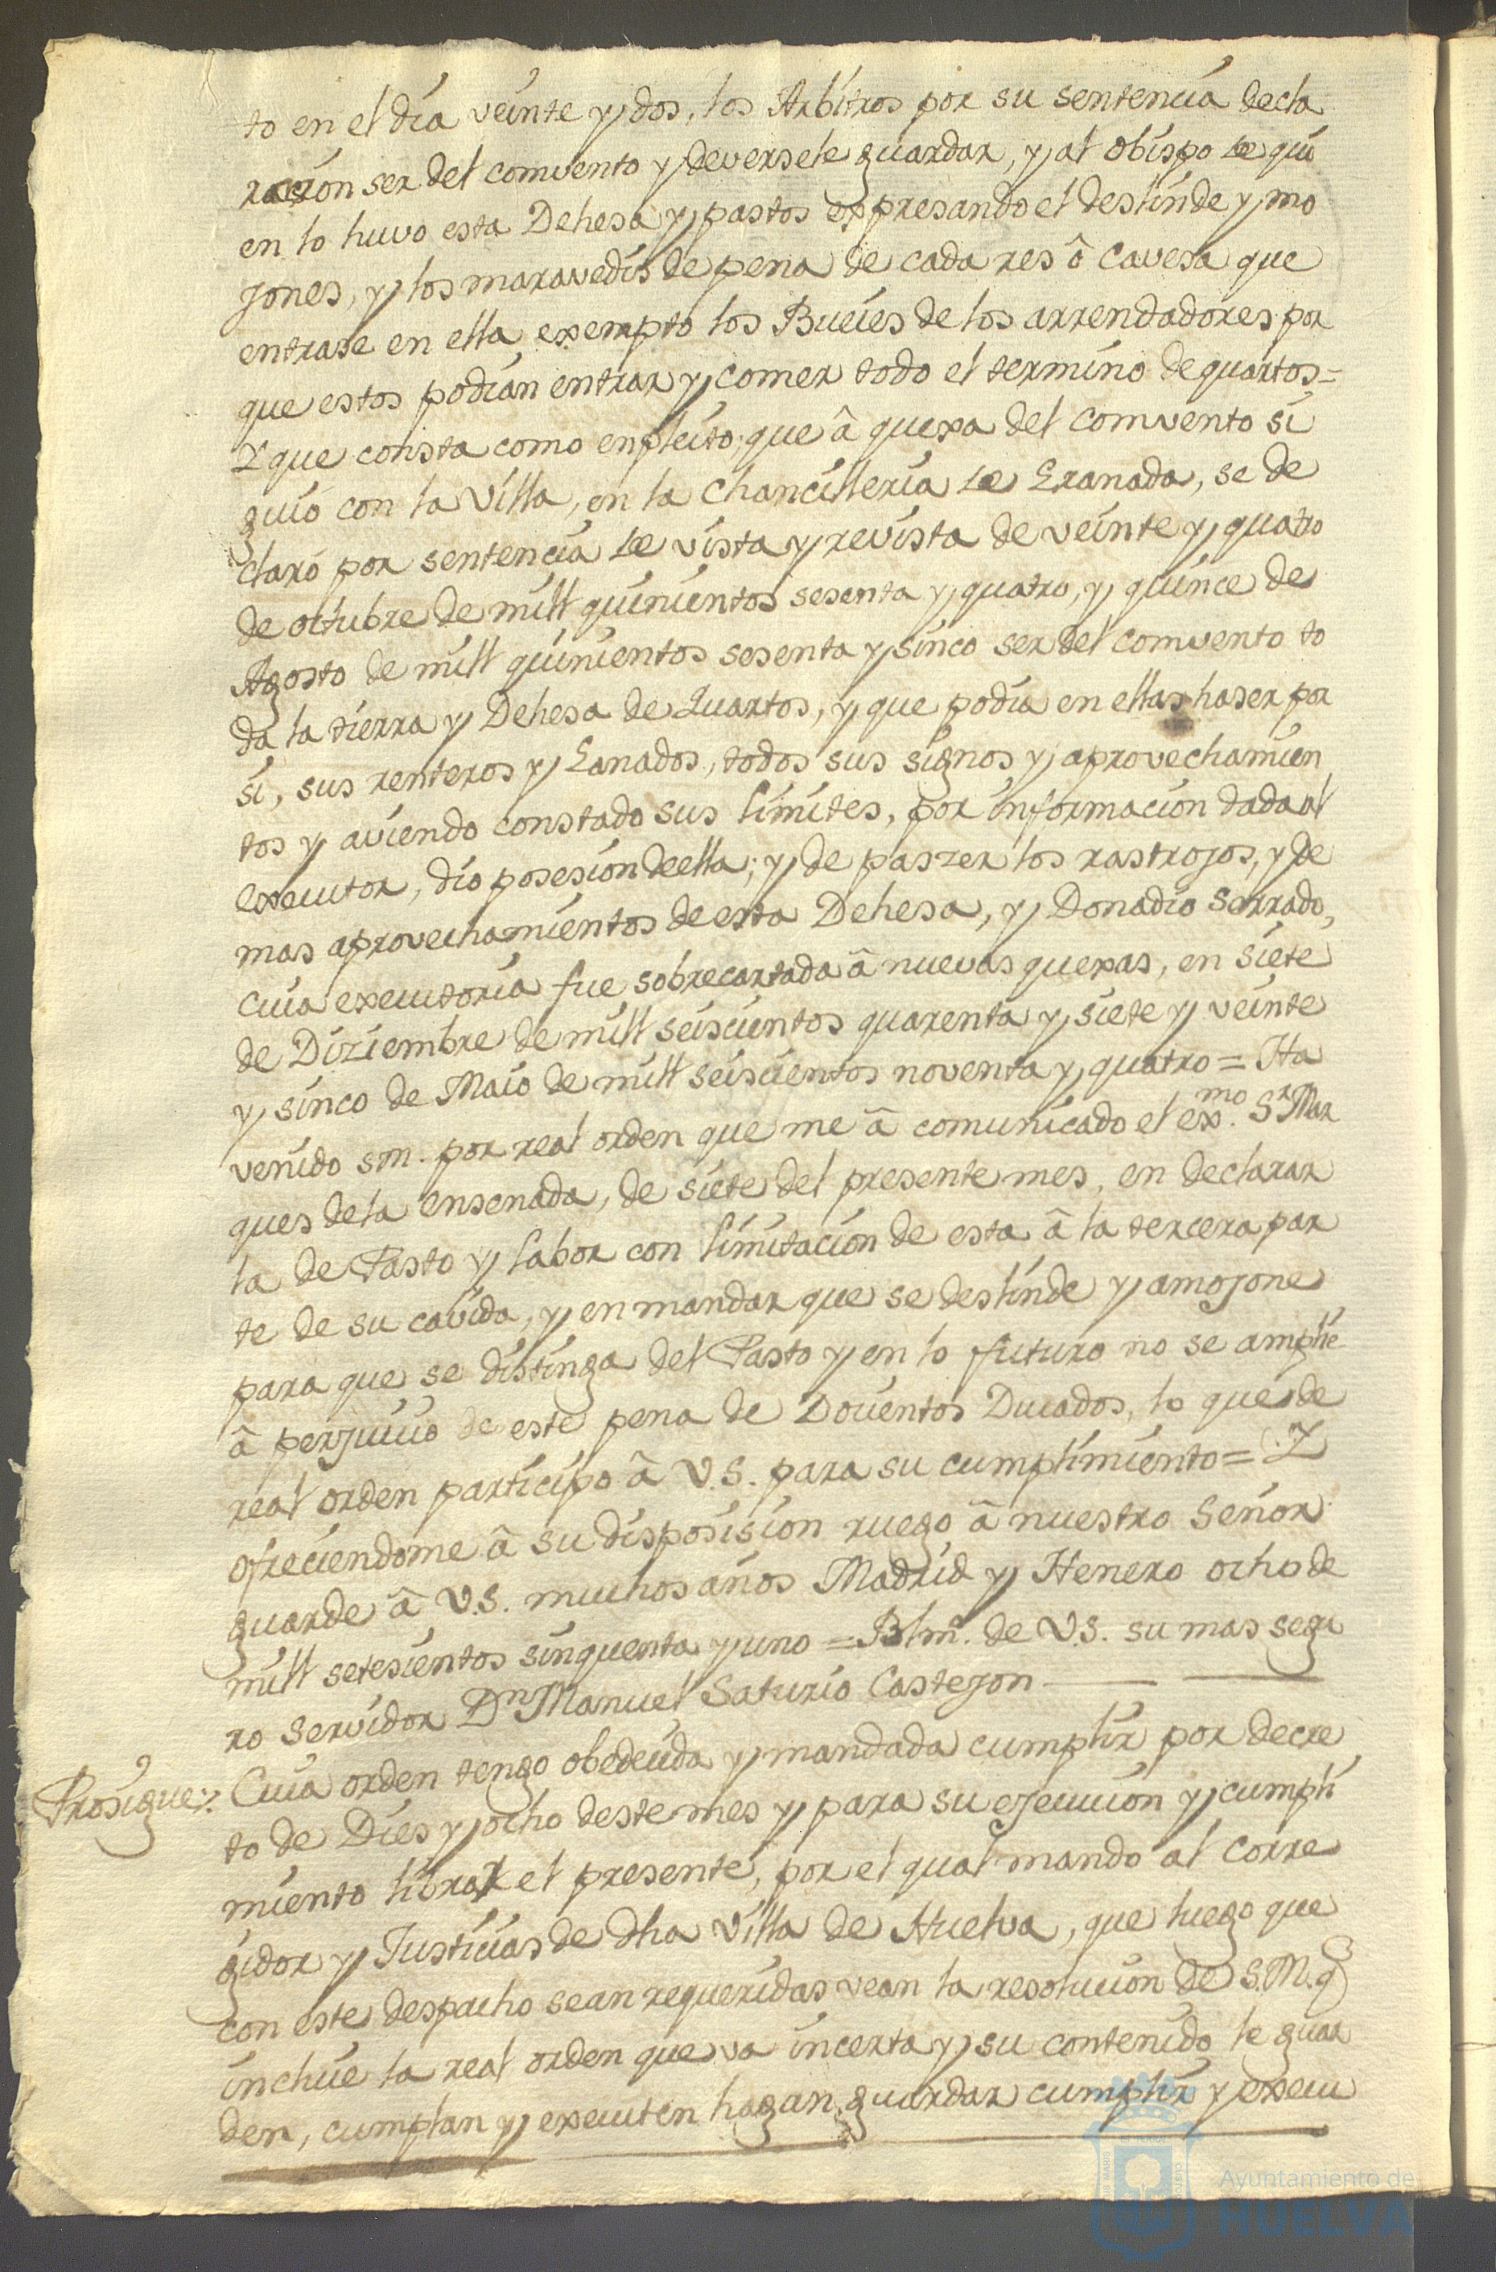 to en el dia veinte y dos, los Arbitros por su sentencia decla
racion ser del comvento y deversele guardar, y al obispo de qui
en lo huvo esta Dehesa y pastos expresando el deslinde y mo
jones, y los maravedis de pena de cada res ô cavesa que
entrase en ella exempto los Bueies de los arrendadores por
que estos podian entrar y comer todo el termino de quartos=
Y que consta como en pleito, que â quexa del comvento si
guio con la Villa, en la Chancilleria de Granada, se de
claró por sentencia de vista y revista de veinte y quatro
de octubre de mill quinientos sesenta y quatro, y quince de
Agosto de mill quinientos sesenta y sinco ser del comvento to
da la tierra y Dehesa de Quartos, y que podia en ellas haser por
si, sus renteros y Ganados, todos sus signos y aprovechamien
tos y aviendo constado sus limites, por informacion dada al
executor, dio posesion de ella; y de paszer los rastrojos, y de
mas aprovechamientos de esta Dehesa, y Donadio Serrado,
Cuia executoria fue sobrecartada â nuevas quexas, en siete
de Diziembre de mill seiscientos quarenta y siete y veinte
y sinco de Maio de mill seiscientos noventa y quatro = Ha
venido S.M. por real orden que me â comunicado el exmo. Sr Mar
ques de la ensenada, de siete del presente mes, en declarar
la de Pasto y labor con limitacion de esta â la tercera par
te de su cavida, y en mandar que se deslinde y amojone
para que se distinga del Pasto y en lo futuro no se amplie
â perjuicio de este pena de Docientos Ducados, lo que de
real orden participo â V.S. para su cumplimiento= Y
ofreciendome â su disposision ruego â nuestro Señor
guarde â V.S. muchos años Madrid y Henero ocho de
mill setesientos sinquenta y uno = Blm. de V.S. su mas segu
ro servidor Dn Manuel Saturio Castejon
Prosigue. Cuia orden tengo obedecida y mandada cumplir por decre
to de Dies y ocho deste mes y para su ejecucion y cumpli
miento librar el presente, por el qual mando al Corre
gidor y Justicias de dha Villa de Huelva, que luego que
con este despacho sean requeridas vean la resolucion de S.M. q
incluie la real orden que va incerta y su contenido le guar
den, cumplan y executen hagan guardar cumplir y execu
Ayuntamiento de
HUELVA